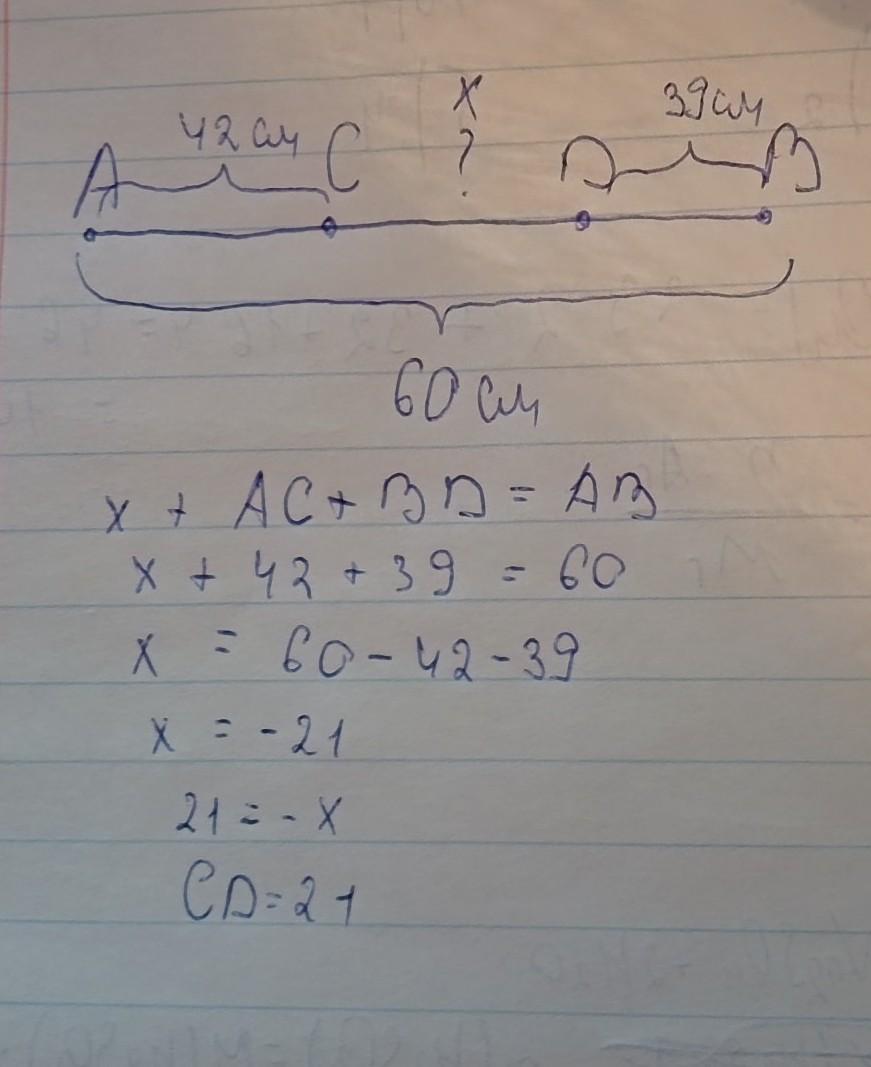 x
42 см 39 см
A C ? D B
60 см
x + AC + BD = AB
x + 42 + 39 = 60
x = 60 - 42 - 39
x = - 21
21 = - x
CD = 21